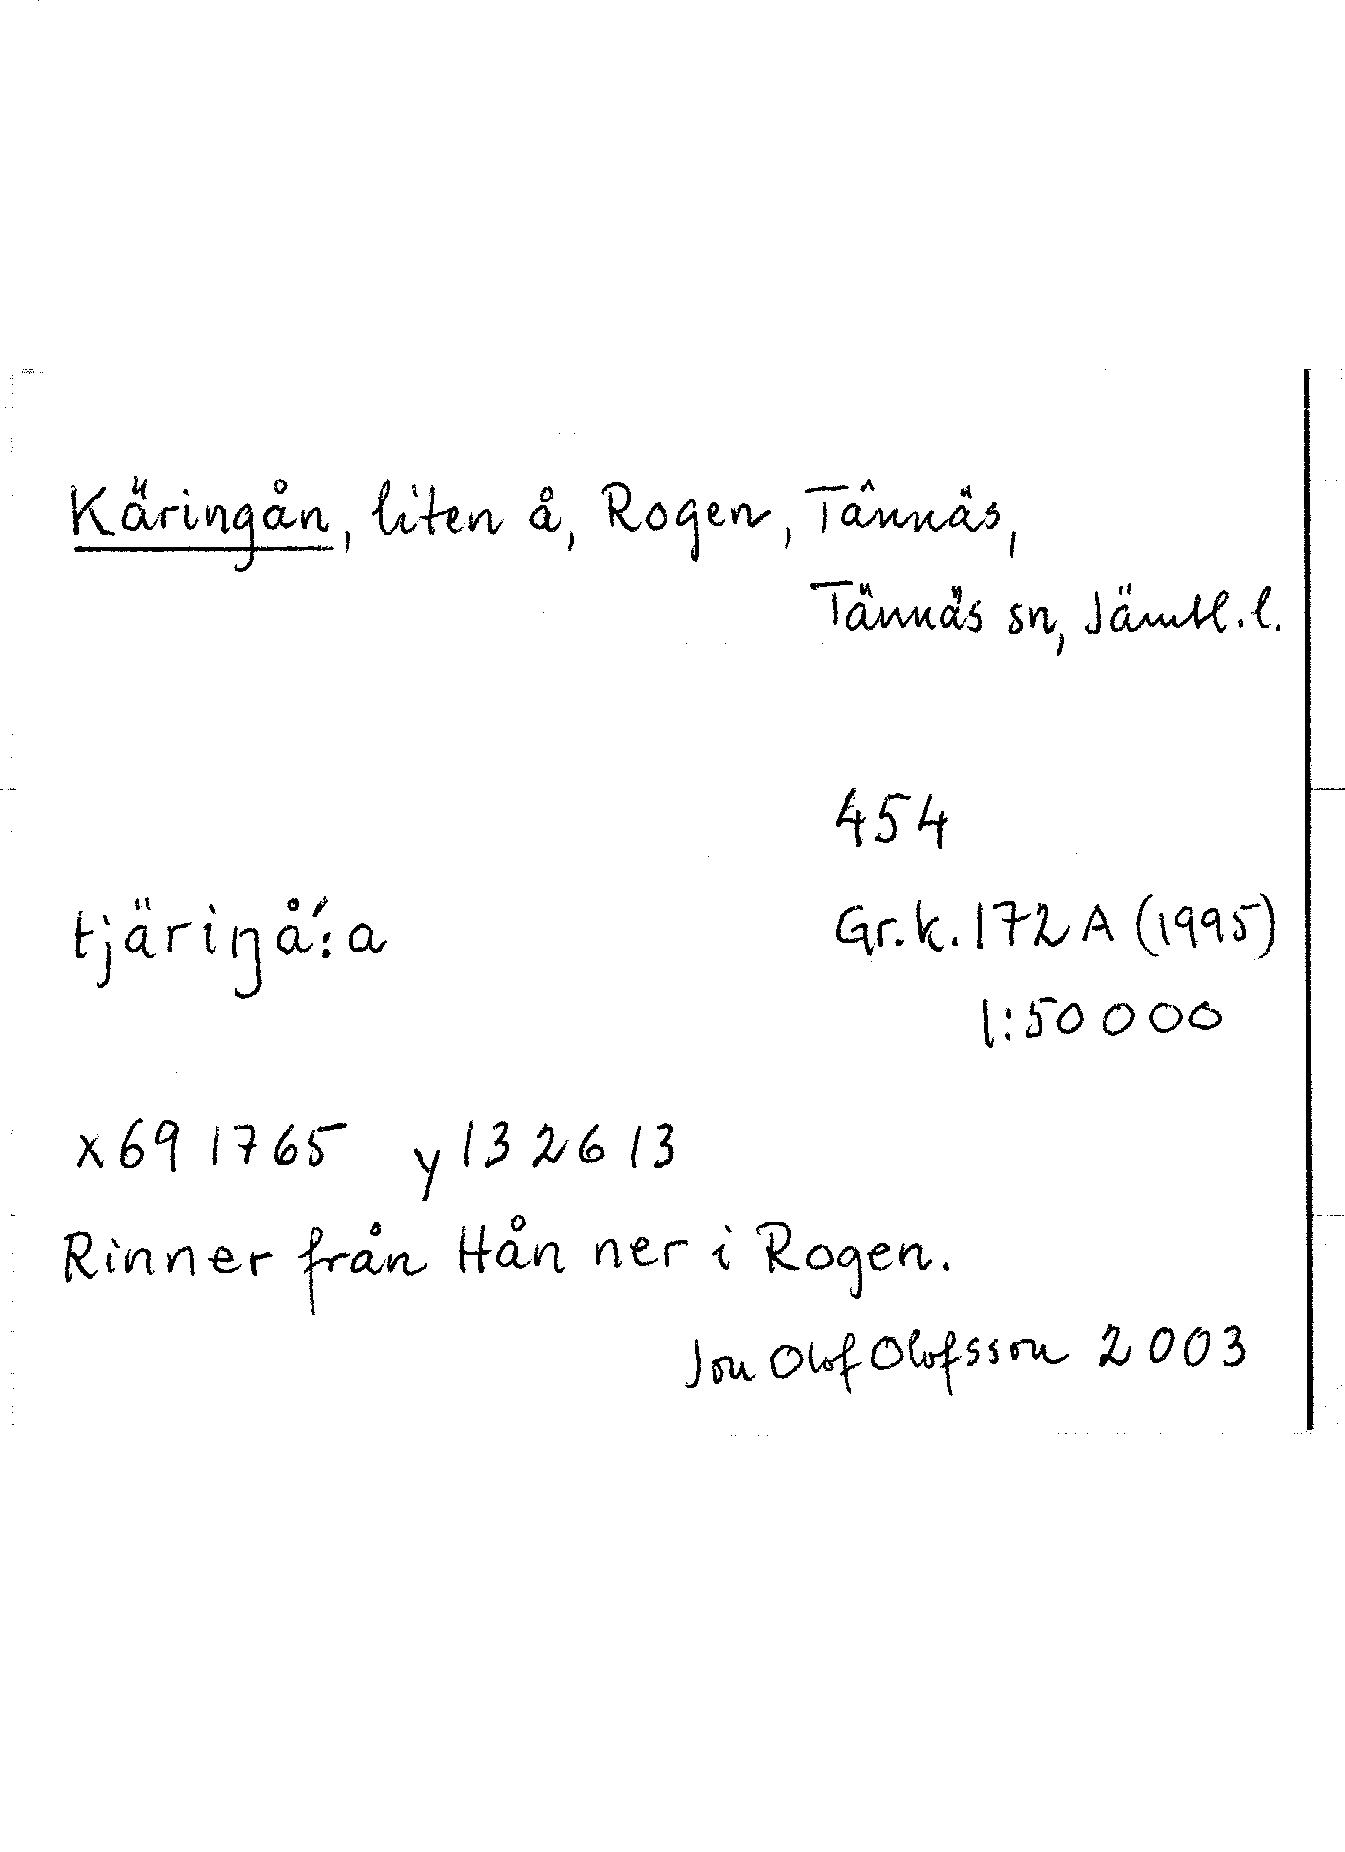 Käringån, liten å, Rogen, Tännäs,
Tännäs sn, Jämtl. l.
454
tjäriŋå´:a
Gr.k. 172 A (1995)
1:50 000
x 691765 y 132613
Rinner från Hån ner i Rogen.
Jon Olof Olofsson 2003